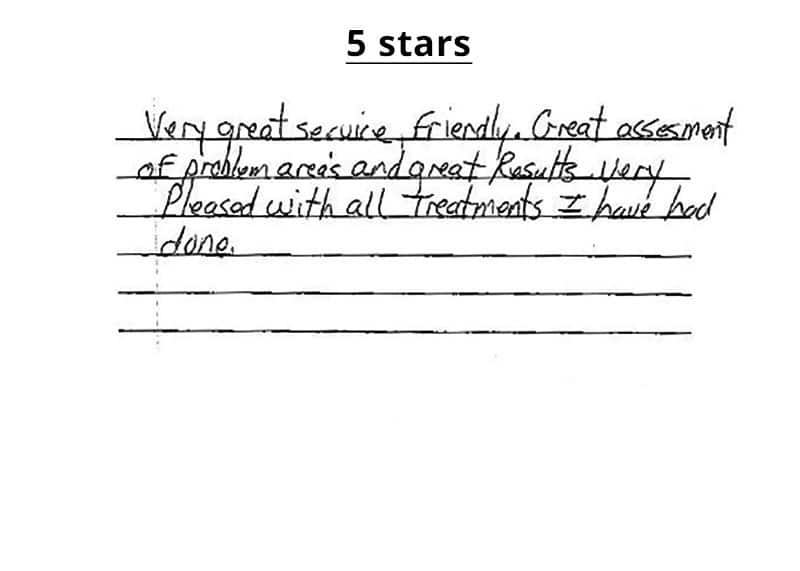 5 stars
Very great service, friendly. Great assesment
of problem area's and great Results. Very
Pleased with all Treatments I have had
done.